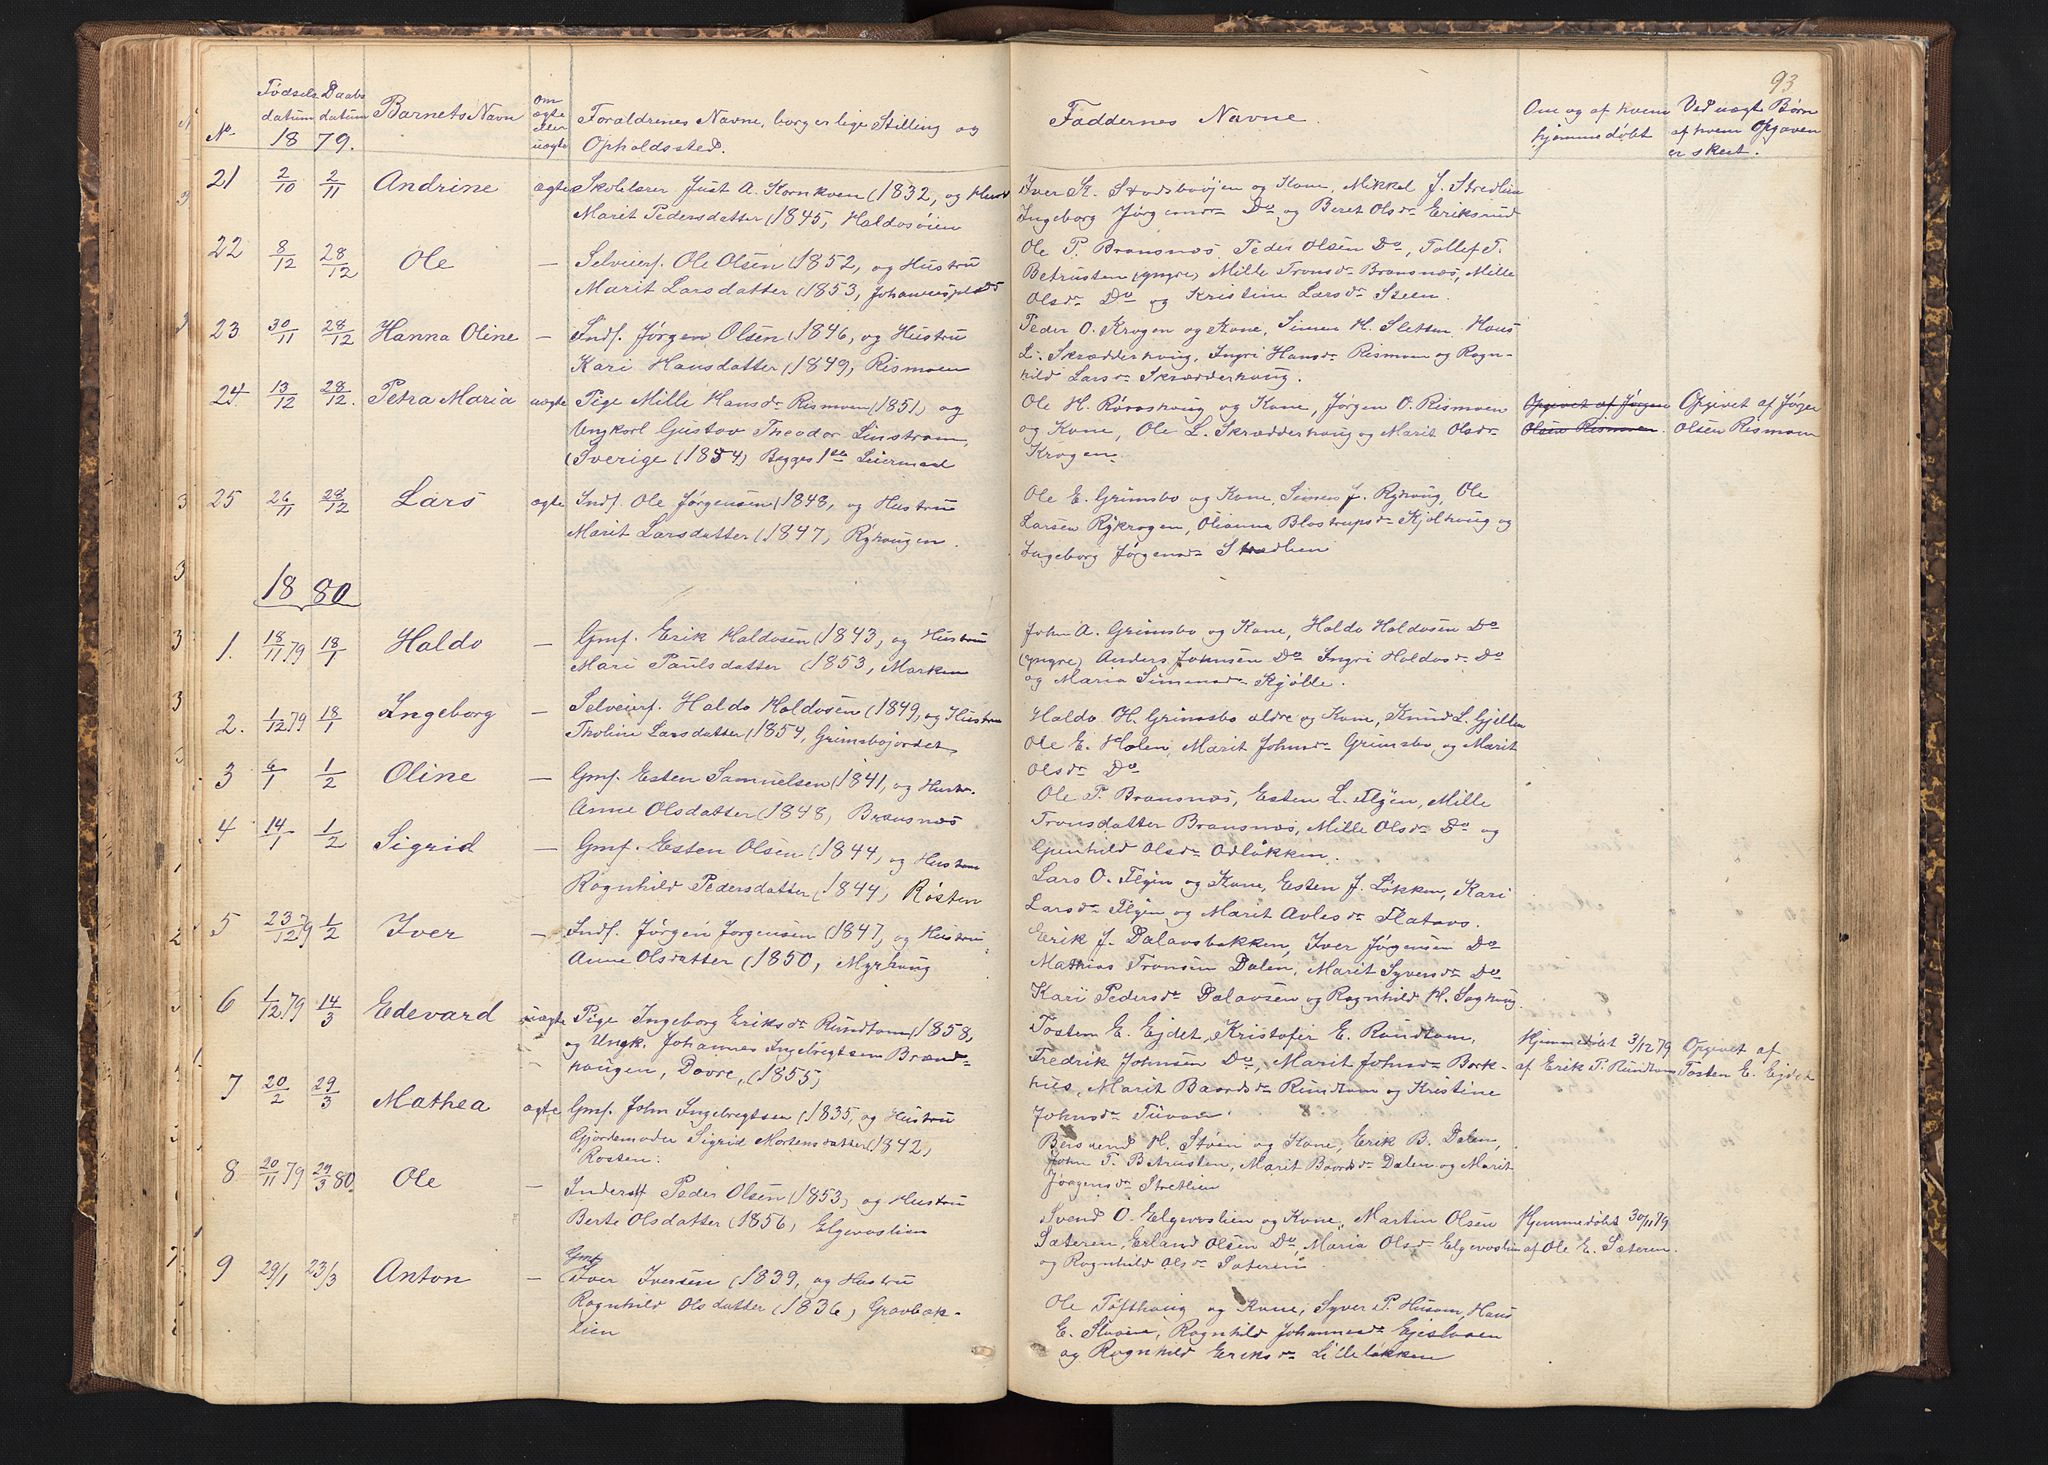 93
No.
Fødsels datum
Daabs datum
18 79.
Barnets Navn
Om ægte eller uægte
Forældrenes Navne, borgerlige Stilling og
Opholdssted.
Faddernes Navne.
Om og af hvem
hjemmedøbt
Ved uægte Børn
af hvem Opgaven
er skeet.
21 2/10 2/11 Andrine ægte Skolelærer Just A. Kornkven (1832, og Hust
Marit Pedersdatter (1845, Haldosøien
Iver St. Stadsbuøjen og Kone, Mikkel J. Stredlien
Ingeborg Jørgensdr Do og Beret Olsdr Eriksrud
22 8/12 28/12 Ole — Selveierf. Ole Olsen (1852, og Hustru
Marit Larsdatter (1853, Johannesplads
Ole P. Brænsnæs Peder Olsen Do, Tollef T.
Betrusten (yngre) Mille Tronsdr Brænsnæs, Mille
Olsdr Do og Kristine Larsdr Steen.
23 30/11 28/12 Hanna Oline — Indf. Jørgen Olsen (1846, og Hustru
Kari Hansdatter (1849, Rismoen
Peder O. Krogen og Kone, Simen H. Sletten. Hans
L. Skrædderhaug, Ingri Hansdr Rismoen og Ragn-
hild Larsdr Skrædderhaug.
24 13/12 28/12. Petra Maria uægte Pige Mille Hansdr Rismoen (1851) og
Ungkarl Gustav Theodor Linstrøm,
(Sverige (1854) Begges 1ste Leiermaal
Ole H. Røraashaug og Kone, Jørgen O. Rismoen
og Kone, Ole L. Skrædderhaug og Marit Olsdr
Krogen.
Opgivet af Jørgen
Olsen Rismoen.
Opgivet af Jørgen
Olsen Rismoen
25 26/11 28/12 Lars ægte Indf. Ole Jørgensen (1848, og Hustru
Marit Larsdatter (1847, Ryhaugen.
Ole E. Grimsbo og Kone, Simen J. Ryhaug, Ole
Larsen Rykrogen, Olianna Blostrupsdr Kjølhaug og
Ingeborg Jørgensdr Stredlien
18 80
1. 18/11 79 18/1 Haldo — Gmf. Erik Haldosen (1843, og Hustru
Mari Paulsdatter (1853, Marken
John A. Grimsbo og Kone, Haldo Haldosen Do
(yngre) Anders Johnsen Do Ingri Haldosdr Do
og Maria Simensdr Kjølle.
2. 1/12 79 18/1 Ingeborg — Selveierf. Haldo Haldosen (1849, og Hustru
Tholine Larsdatter (1854, Grimsbojordet
Haldo H. Grimsbo ældre og Kone, Knud L. Gjelten
Ole E. Holen, Marit Johnsdr Grimsbo og Marit
Olsdr Do
3 6/1 1/2 Oline — Gmf. Esten Samuelsen (1841, og Hustr.
Anne Olsdatter (1848, Brænsnæs
Ole P. Brænsnæs, Esten L. Flyen, Mille
Tronsdatter Brænsnæs, Mille Olsdr Do og
Gunhild Olsdr Odløkken.
4 14/1 1/2 Sigrid — Gmf. Esten Olsen (1844, og Hustru
Ragnhild Pedersdatter (1844, Røsten
Lars O. Flyen og Kone, Esten J. Løkken, Kari
Larsdr Flyen og Marit Avlesdr Flataas.
5 23/12 79 1/2 Iver — Indf. Jørgen Jørgensen (1847, og Hustru
Anne Olsdatter (1850, Myrhaug
Erik J. Dalavsbakken, Iver Jørgensen Do
Mathias Tronsen Dalen, Marit Syversdr Do
Kari Pedersdr Dalavsen og Ragnhild H. Saghaug
6 1/12 79 14/3 Edevard uægte Pige Ingeborg Eriksdr Rundtom (1858,
og Ungk. Johannes Ingebrigtsen Brænd-
haugen, Dovre, (1855)
Tosten E. Ejdet, Kristofer E. Rundtom,
Fredrik Johnsen Do, Marit Johnsdr Bork-
hus, Marit Baardsdr Rundtom og Kristine
Johnsdr Tuvan.
Hjemmedøbt 3/12 79
af Erik P. Rundtom
Opgivet af
Tosten E. Ejdet
7 20/2 29/3 Mathea ægte Gmf. John Ingebrigtsen (1835, og Hustru
Gjordemoder Sigrid Mortensdatter (1842,
Rosten.
Bersvend H. Støen og Kone, Erik B. Dalen,
John T. Betrusten, Marit Baardsdr Dalen og Marit
Jørgensdr Stretlien
8 20/11 79 29/3 80. Ole — Inderst Peder Olsen (1853) og Hustru
Berte Olsdatter (1856) Elgevaslien
Svend O. Elgevaslien og Kone, Martin Olsen
Sæteren, Erland Olsen Do, Maria Olsdr Elgevaslien
og Ragnhild Olsdr Sæteren.
Hjemmedøbt 30/11 79
af Ole E. Sæteren.
9 29/1 23/3 Anton — Gmf.
Iver Iversen (1839, og Hustru
Ragnhild Olsdatter (1836) Gravbæk-
lien
Ole Tofthaug og Kone, Syver P. Husom, Hans
E. Stuen, Ragnhild Johannesdr Ejesloen
og Ragnhild Eriksdr Lilleløkken